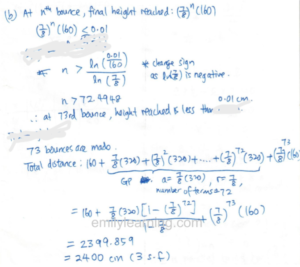 (b) At nth bounce, final height reached : (7/8)^n (160)
(7/8)^n (160) ≤ 0.01
n > ln(0.01/160) / ln(7/8) * change sign
as ln(7/8) is negative.
n > 72.4948
∴ at 73rd bounce, height reached is less than 0.01 cm.
73 bounces are made.
Total distance : 160 + 7/8 (320) + (7/8)^2 (320) + .... + (7/8)^72 (320) + (7/8)^73 (160)
GP a = 7/8 (320), r = 7/8,
number of terms = 72
= 160 + 7/8 (320) [1 - (7/8)^72] / 1 - 7/8 + (7/8)^73 (160)
emilylearning.com
= 2399.859
= 2400 cm (3 s.f.)